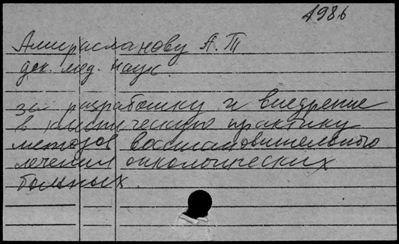 1986
Амирасланову А. Т
док. мед. наук.
за разработку и внедрение
в клиническую практику
методов восстановительного
лечения онкологических
больных.